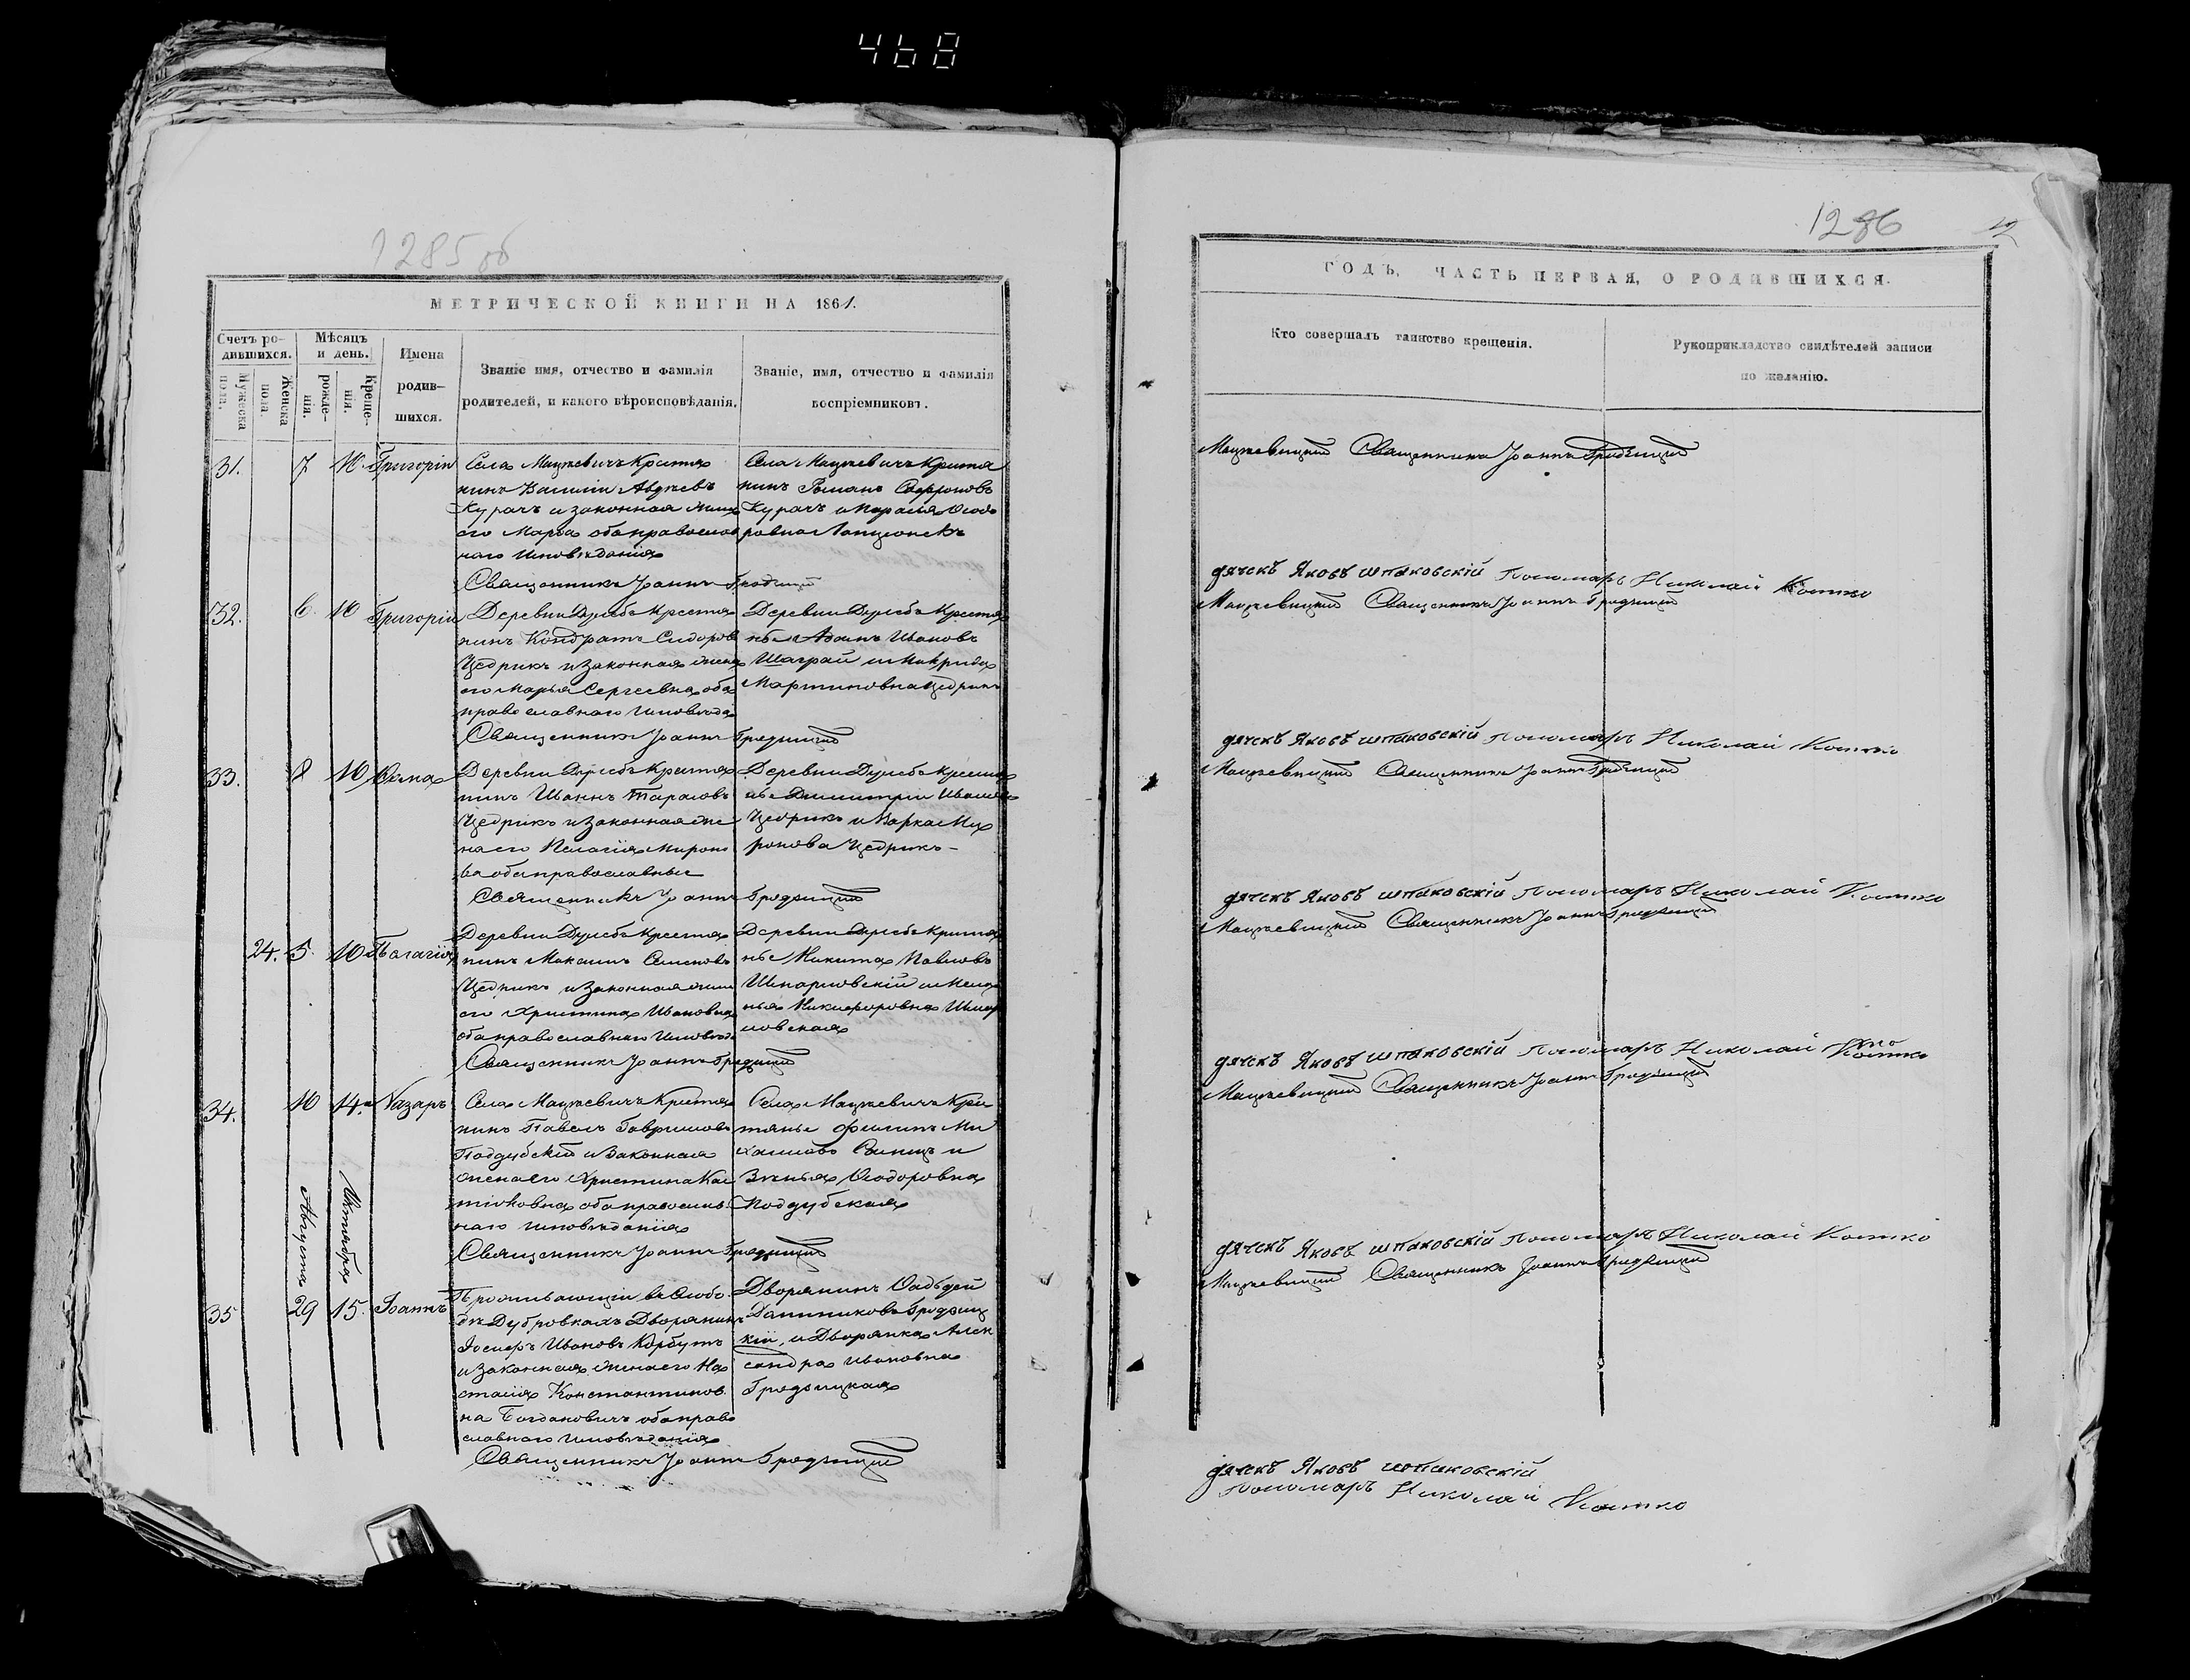 468
1285 об
МЕТРИЧЕСКОЙ КНИГИ НА 1861.
Счетъ ро-
дившихся.
Мужеска
пола.
Женска
пола.
Мѣсяцъ
и день.
рожде-
нія.
Креще-
нія.
Имена
родив-
шихся.
Званіе имя, отчество и фамилія
родителей, и какого вѣроисповѣданія.
Званіе, имя, отчество и фамилія
воспріемниковъ.
31. 7 10 Григорій
Села Мацкевичъ Крестья
нинъ Василій Авдѣевъ
Курачъ и законная жена
его Марѳа оба православ
наго исповѣданія
Священникъ Іоаннъ Гродзицкій
Села Мацкевичъ Крестья
нинъ Романъ Софроновъ
Курачъ и Параскія Ѳеодо
ровна
32. 6. 10 Григорій
Деревни Дулебъ Крестья
нинъ Кондратъ Сидоровъ
Цедрикъ и законная жена
его Марья Сергеевна оба
православнаго исповѣда
Священникъ Іоаннъ Гродзицкій
Деревни Дулебъ Крестья
не Ивановъ
Шаграй и Макрида
Мартиновна Цедрикъ
33. 8 10 Ѳома
Деревни Дулебъ Крестья
нинъ Иванъ Тарасовъ
Цедрикъ и законная же
на его Пелагія Мироно
ва оба православные
Священникъ Іоаннъ Гродзицкій
Деревни Дулебъ Крестья
не Димитрій Ивановъ
Цедрикъ и Варка Ми
ронова Цедрикъ-
24. 5. 10 Пелагія
Деревни Дулебъ Крестья
нинъ Максимъ Семеновъ
Цедрикъ и законная жена
его Христина Ивановна
оба православнаго исповѣд
Священникъ Іоаннъ Гродзицкій
Деревни Дулебъ Крестья
не Никита Павловъ
и Мела
нья Никифоровна
ловская
34. 10 14. Назаръ
Села Мацкевичъ Крестья
нинъ Павелъ Гавриловъ
Поддубскій и законная
жена его Христина Кас
оба православ
наго исповѣданія
Священникъ Іоаннъ Гродзицкій
Села Мацкевичъ Кре
стьяне Филипъ Ми
хаиловъ и
Ѳеодоровна
Поддубская
Августа
Октября
35 29 15. Іоаннъ
Проживающій въ Слобо
дѣ Дубровкахъ Дворянинъ
Іосифъ Ивановъ Корбутъ
и законная жена его На
стасія Константинов
на Богдановичъ оба право
славнаго исповѣданія
Священникъ Іоаннъ Гродзицкій
Дворянинъ Ѳадѣей
Доминиковъ Гродзиц
кій, и Дворянка Алек
сандра Ивановна
Гродзицкая
1286
ГОДЪ, ЧАСТЬ ПЕРВАЯ, О РОДИВШИХСЯ.
Кто совершалъ таинство крещенія.
Рукоприкладство свидѣтелей записи
по желанію.
Мацкевицкій Священникъ Іоаннъ Гродзицкій
дячекъ Яковъ шпаковскій Пономарь Николай Костко
Мацкевицкій Священникъ Іоаннъ Гродзицкій
дячекъ Яковъ шпаковскій Пономарь Николай Костко
Мацкевицкій Священникъ Іоаннъ Гродзицкій
дячекъ Яковъ шпаковскій Пономарь Николай Костко
Мацкевицкій Священникъ Іоаннъ Гродзицкій
дячекъ Яковъ шпаковскій Пономарь Николай Костко
Мацкевицкій Священникъ Іоаннъ Гродзицкій
дячекъ Яковъ шпаковскій Пономарь Николай Костко
Мацкевицкій Священникъ Іоаннъ Гродзицкій
дячекъ Яковъ шпаковскій
Пономарь Николай Костко